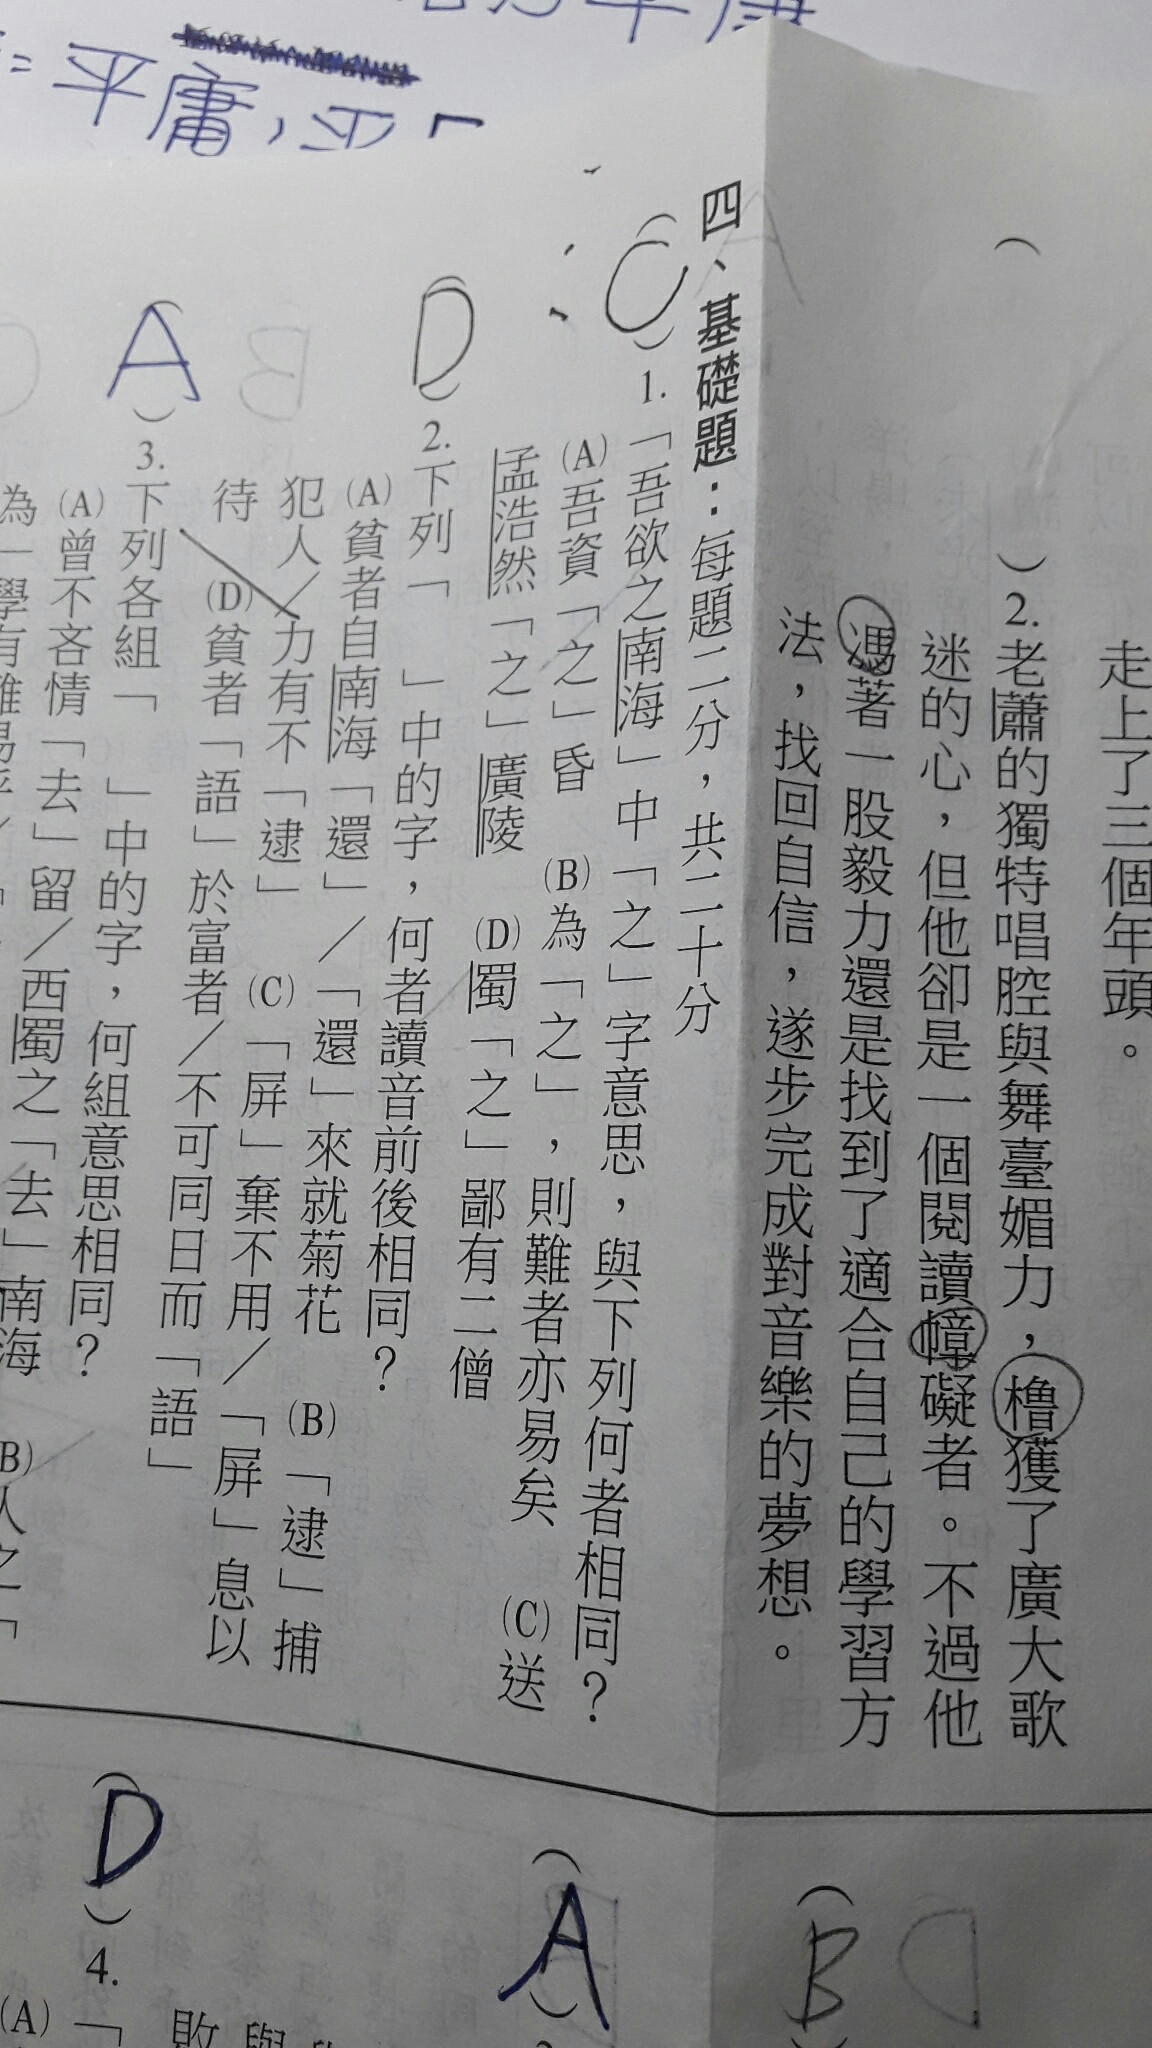 平庸，平
走上了三個年頭。
（　）2.老蕭的獨特唱腔與舞臺媚力，櫓獲了廣大歌
迷的心，但他卻是一個閱讀幛礙者。不過他
馮著一股毅力還是找到了適合自己的學習方
法，找回自信，遂步完成對音樂的夢想。
四、基礎題：每題二分，共二十分
（C）1.「吾欲之南海」中「之」字意思，與下列何者相同？
(A)吾資「之」昏　(B)為「之」，則難者亦易矣　(C)送
孟浩然「之」廣陵　(D)蜀「之」鄙有二僧
（D）2.下列「　」中的字，何者讀音前後相同？
(A)貧者自南海「還」／「還」來就菊花　(B)「逮」捕
犯人／力有不「逮」　(C)「屏」棄不用／「屏」息以
待　(D)貧者「語」於富者／不可同日而「語」
（A）3.下列各組「　」中的字，何組意思相同？
(A)曾不吝情「去」留／西蜀之「去」南海　(B)人之「
為
（B）
（A）
（D）4.
(A)「